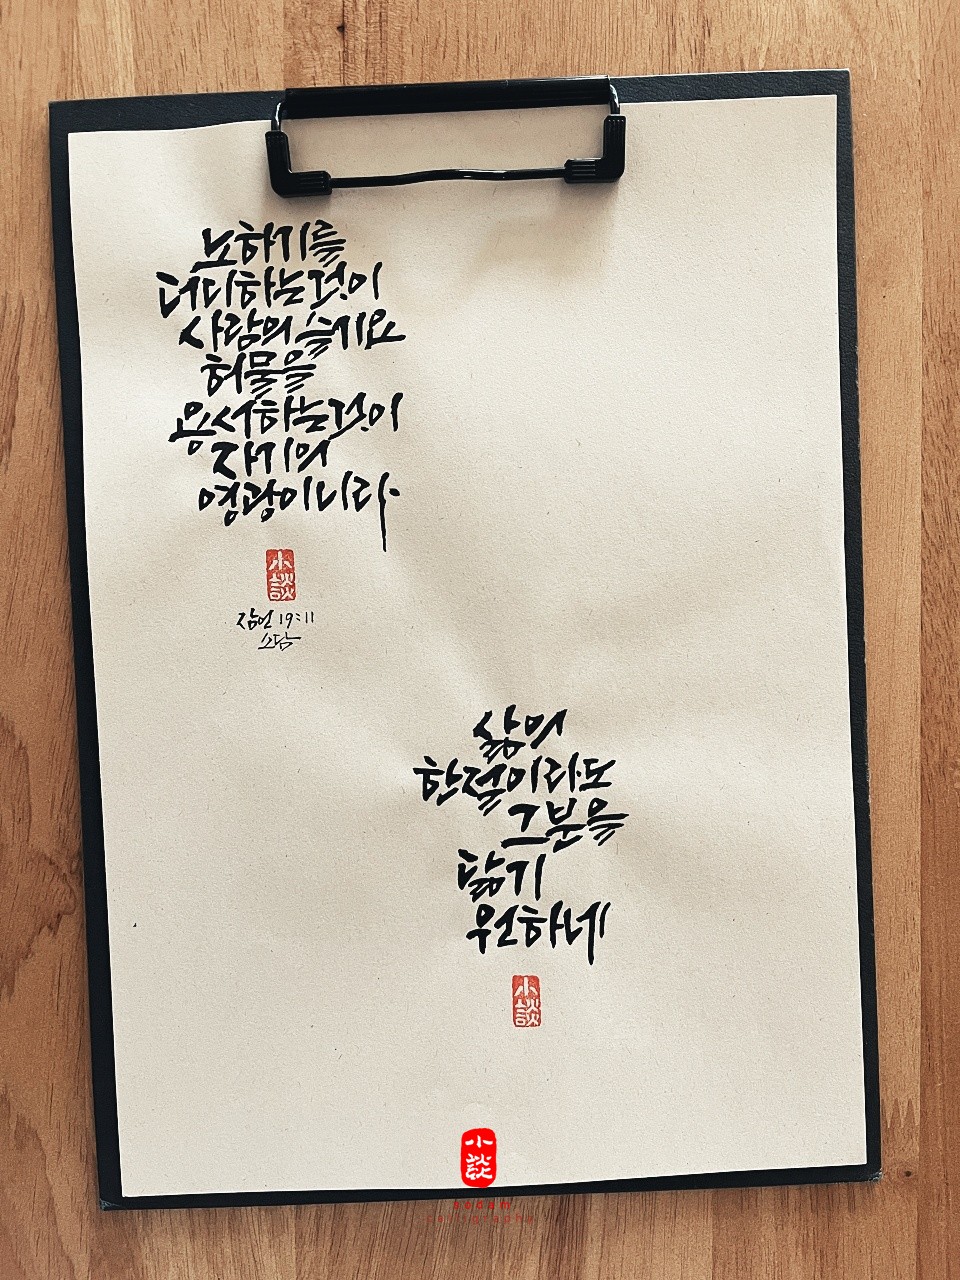 노하기를
더디하는것이
사람의 슬기요
허물을
용서하는것이
자기의
영광이니라.
小
談
잠언 19:11
소담
삶의
한절이라도
그분을
닮기
원하네
小
談
小
談
sodam
calligraphy